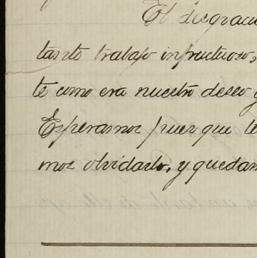 El desgracia
tanto trabajo infructuoso,
te como era nuestro deseo y
Esperamos pues que te
mos olvidarlo, y quedam